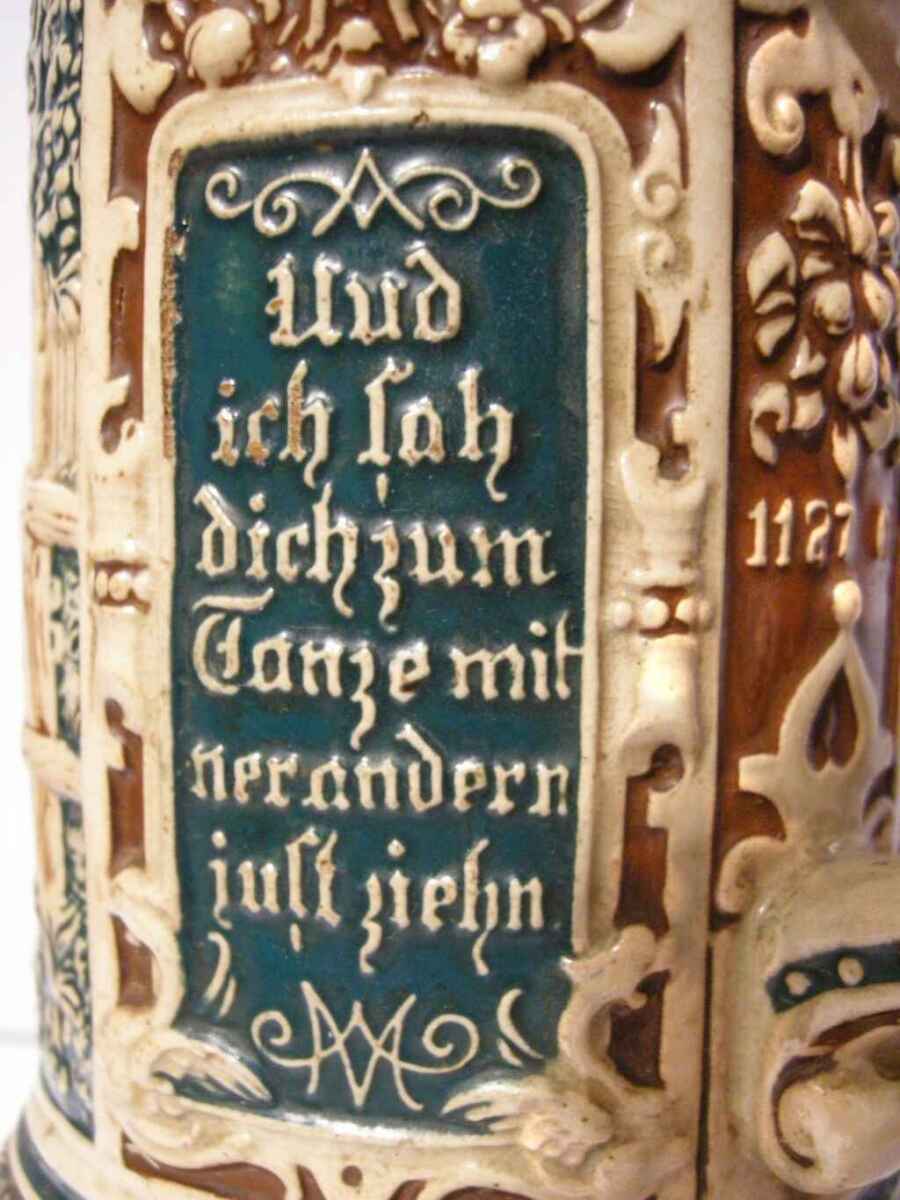 Und
ich sah
dich zum
Tanze mit
ner andern
just ziehn.
1127